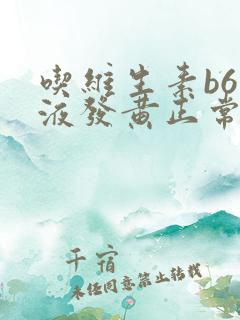 喫維生素b6
液發黃正常
千宿
未经同意禁止转载